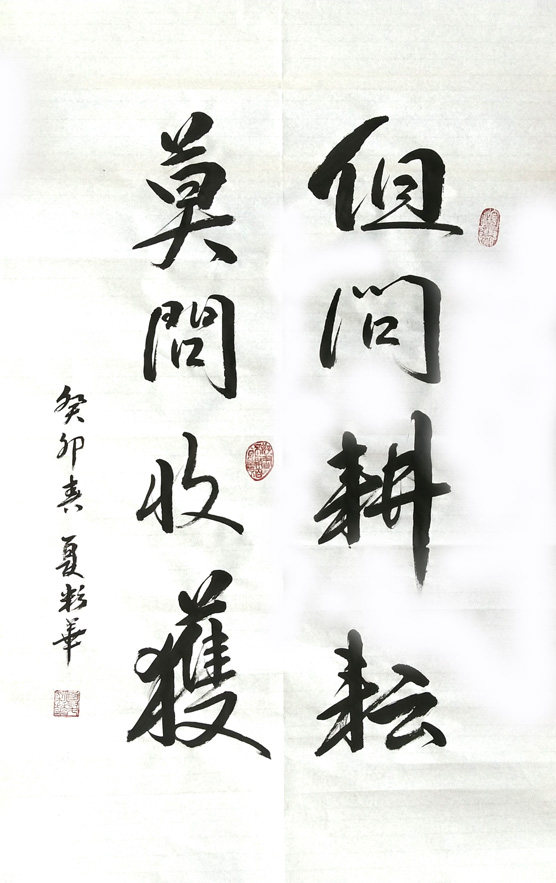 但問耕耘
莫問收獲
癸卯春 夏粉華